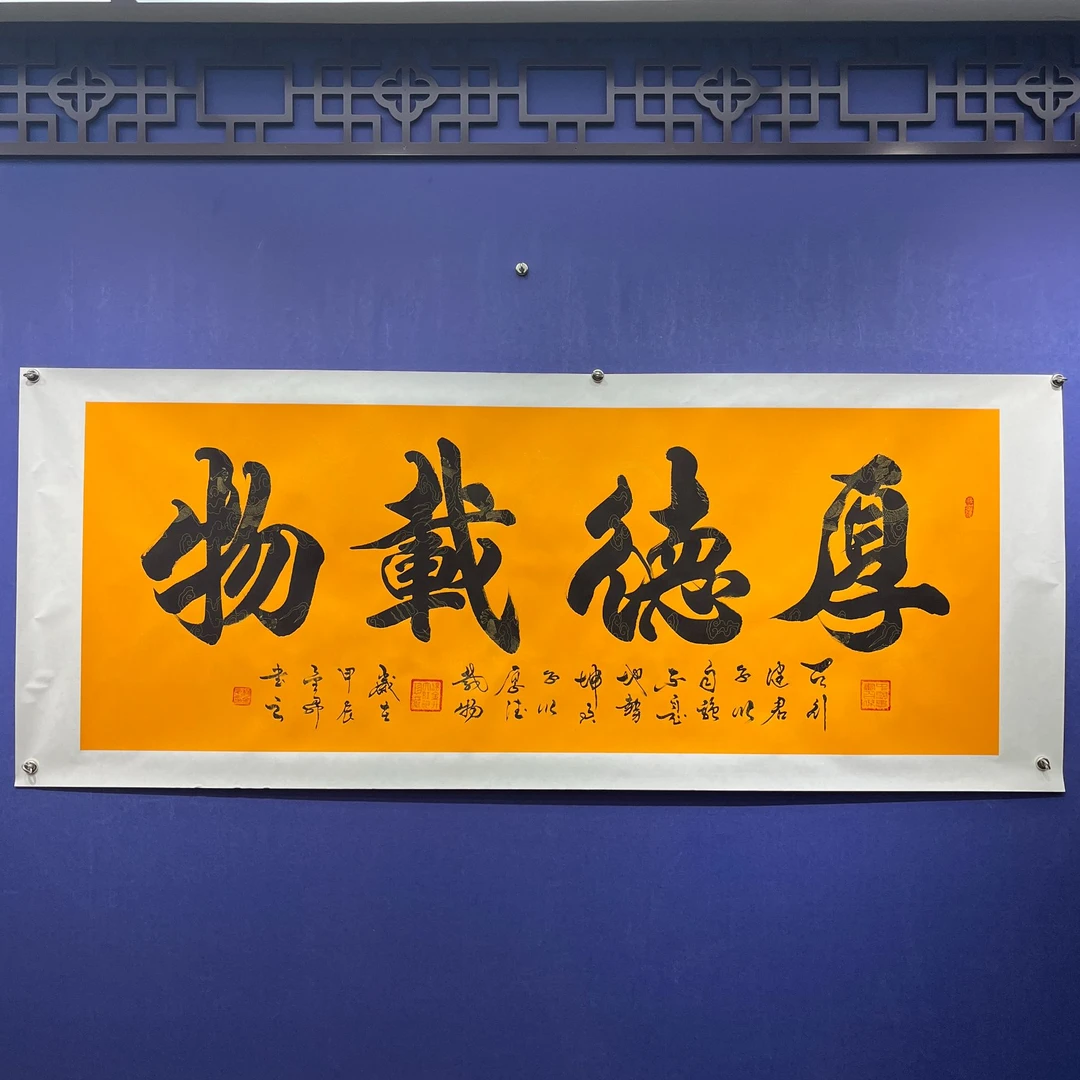 厚德載物
天行
健君
子以
自強
不息
地勢
坤君
子以
厚德
載物
歲在
甲辰
書之